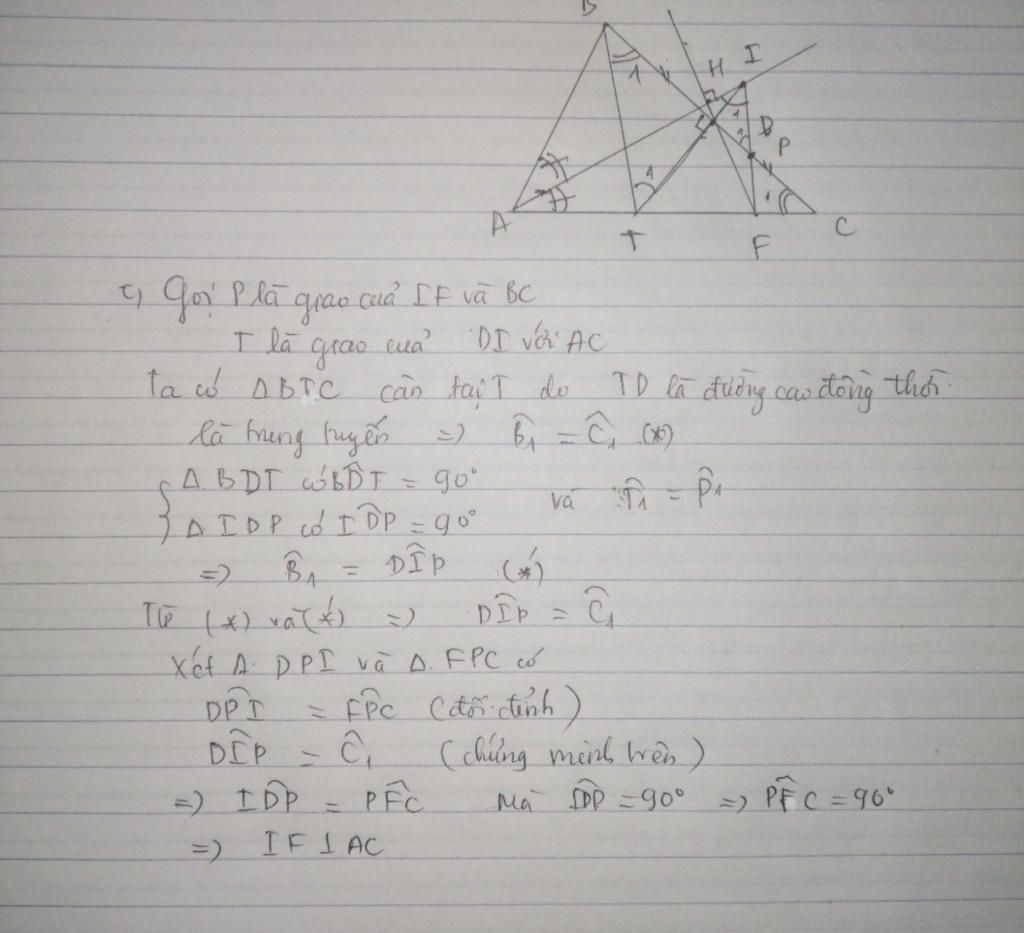 B
H I
1
1
2
D
P
1
1
A
T
F
C
c, Gọi P là giao của IF và BC
T là giao của DI với AC
Ta có ΔBTC cân tại T do TD là đường cao đồng thời
là trung tuyến => B̂₁ = Ĉ₁ (*)
Δ BDT có BD̂T = 90° và T̂₁ = P̂₁
Δ IDP có ID̂P = 90°
=> B̂₁ = DÎP (*')
Từ (*) và (*') => DÎP = Ĉ₁
Xét Δ. DPI và Δ. FPC có
DP̂I = FP̂C (đối đỉnh)
DÎP = Ĉ₁ (chứng minh trên)
=> ID̂P = PF̂C Mà ID̂P = 90° => PF̂C = 90°
=> IF ⊥ AC